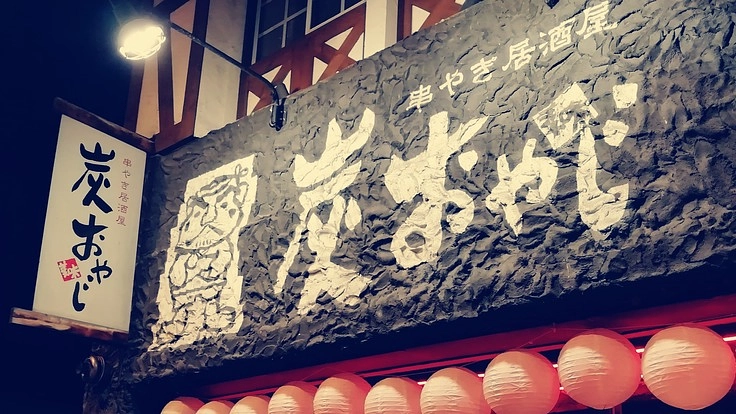 串やき居酒屋
炭おやじ
串やき居酒屋
炭おやじ